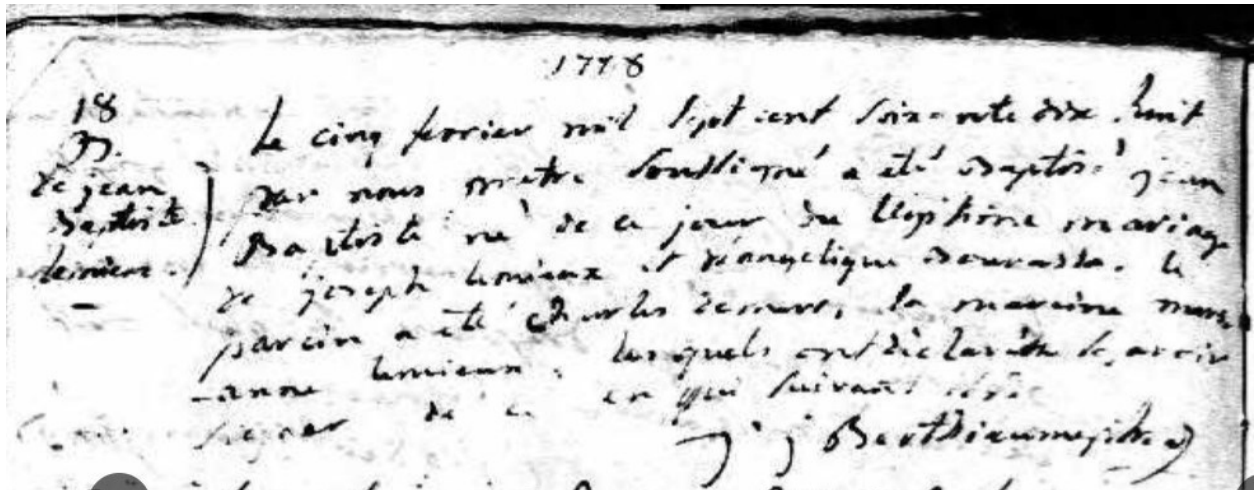 1778
18
B.
de jean
Baptiste
lemieux.
Le cinq fevrier mil sept cent soixante dix huit
par nous prêtre soussigné a eté Baptisé jean
Baptiste né de ce jour du légitime mariage
de joseph lemieux et d'angelique Bourassa. le
parein a eté charles demers, la mareine marie
anne lemieux. lesquels ont déclaré ne sçavoir
signer de ce en qui suivant
j j Berthiaume ptre